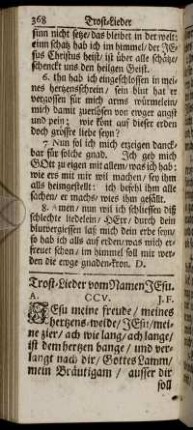 368 Trost-Lieder
sinn nicht setze/ das bleibet in der welt:
einn schatz hab ich im himmel/ der JE-
sus Christus heist/ ist über alle schätze/
schenckt uns den heilgen Geist.
6. Ihn hab ich eingeschlossen in mei-
nes hertzensschrein/ sein blut hat er
vergossen für mich arms würmelein/
mich damit zuerlösen von ewger angst
und pein: wie könt auf dieser erden
doch grösser liebe seyn?
7 Nun soll ich mich erzeigen danck-
bar für solche gnad. Ich geb mich
GOtt zu eigen mit allem/ was ich hab:
wie ers mit mir wil machen/ sey ihm
alls heimgestellt: ich befehl ihm alle
sachen/ er machs/ wies ihm gefällt.
8. Amen/ nun wil ich schliessen diß
schlechte liedelein/ HErr/ durch dein
blutvergiessen laß mich dein erbe seyn/
so hab ich alls auf erden/ was mich er-
freuet schon/ im himmel soll mir wer-
den die ewge gnaden-kron. D.
Trost-Lieder vom Namen JEsu.
A. CCV. J. F.
JEsu meine freude/ meines
hertzens-weide/ JEsu/ mei-
ne zier/ ach wie lang/ ach lange/
ist dem hertzen bange/ und ver-
langt nach dir/ Gottes Lamm/
mein Bräutigam/ ausser dir
soll